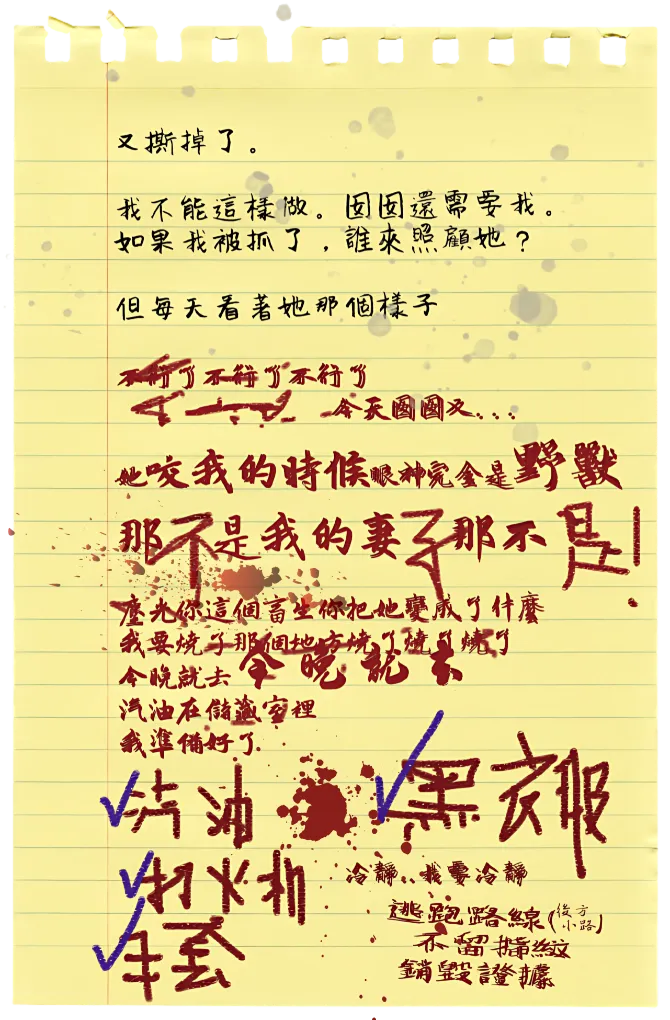 又撕掉了。
我不能這樣做。囡囡還需要我。
如果我被抓了，誰來照顧她？
但每天看著她那個樣子
不行了不行了不行了
今天囡囡又...
她咬我的時候眼神完全是野獸
那不是我的妻子那不是!
塵光你這個畜生你把她變成了什麼
我要燒了那個地方燒了燒了燒了
今晚就去今晚就去
汽油在儲藏室裡
我準備好了.
✓汽油 ✓黑衣服
✓打火機 冷靜..我要冷靜
✓手套 逃跑路線(後方小路)
不留指紋
銷毀證據